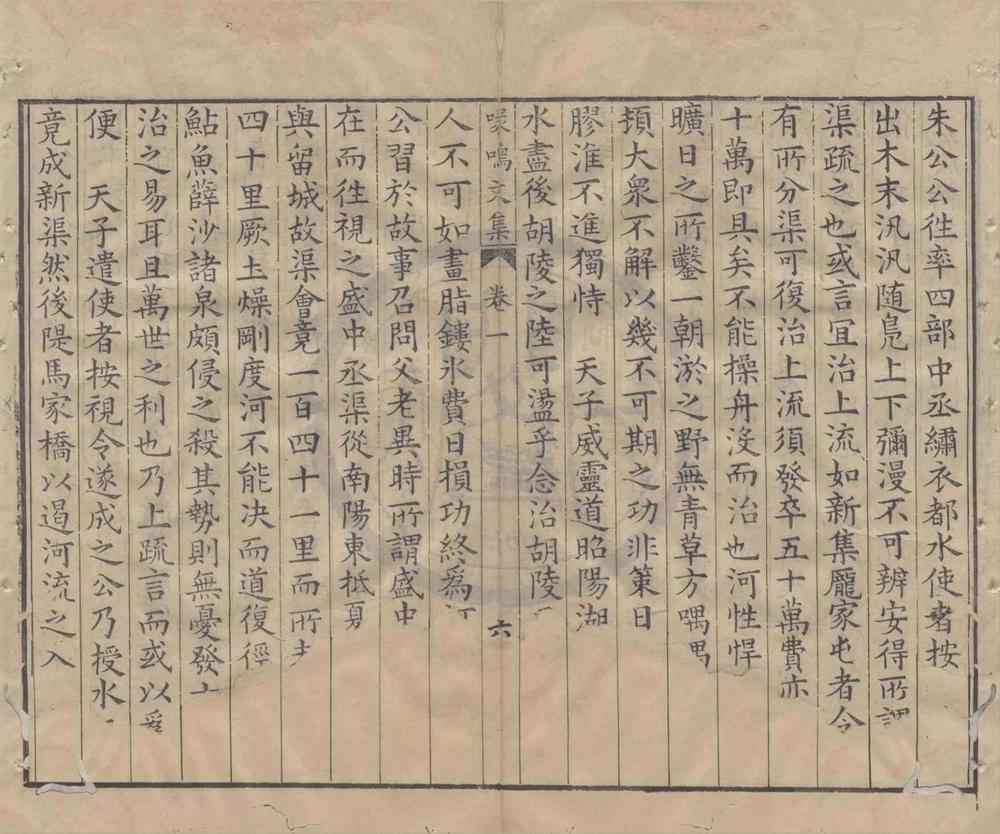 朱公公徃率四部中丞繡衣都水使者按
出木末汎汎随鳬上下彌漫不可辨安得所謂
渠疏之也或言宜治上流如新集龎家屯者今
有所分渠可復治上流須發卒五十萬費亦
十萬即具矣不能操舟没而治也河性悍
曠日之所鑿一朝淤之野無青草方喁喁
頃大衆不解以幾不可期之功非策日
膠淮不進獨恃　天子威靈道昭陽湖
水盡後胡陵之陸可盪乎念治胡陵
喙鳴文集　卷一　六
人不可如畫脂鏤氷費日損功終爲河
公習於故事召問父老異時所謂盛中
在而徃視之盛中丞渠從南陽東抵夏
與留城故渠會竟一百四十一里而所
四十里厥土燥剛度河不能决而道復徑
鮎魚薛沙諸泉頗侵之殺其勢則無憂發
治之易耳且萬世之利也乃上疏言而或以爲
便　天子遣使者按視令遂成之公乃授水
竟成新渠然後隄馬家橋以遏河流之入